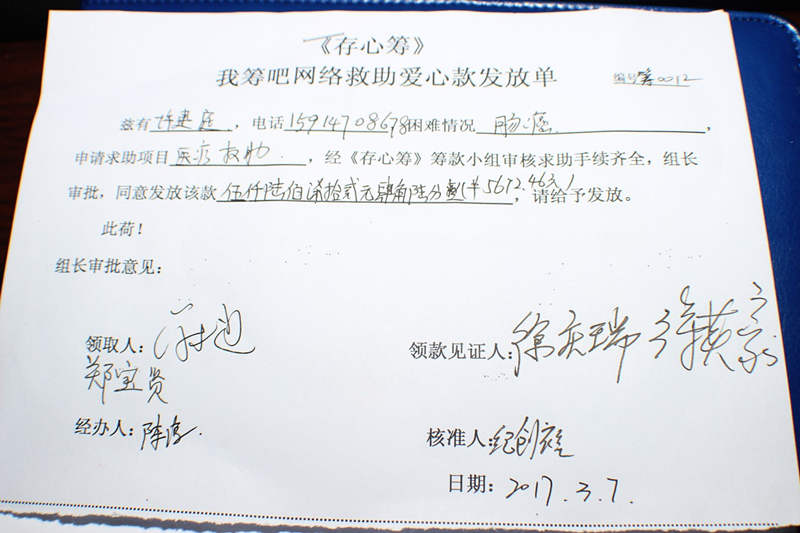 《存心筹》
我筹吧网络救助爱心款发放单
编号筹0012
兹有许，电话15914708678困难情况肠癌，
申请求助项目医疗救助，经《存心筹》筹款小组审核求助手续齐全，组长
审批，同意发放该款伍仟陆佰柒拾贰元肆角陆分整(¥5672.46元)，请给予发放。
此荷！
组长审批意见：
领取人：
领款见证人：徐庆瑞
郑宝贤
经办人：陈
核准人：纪创
日期：2017.3.7.